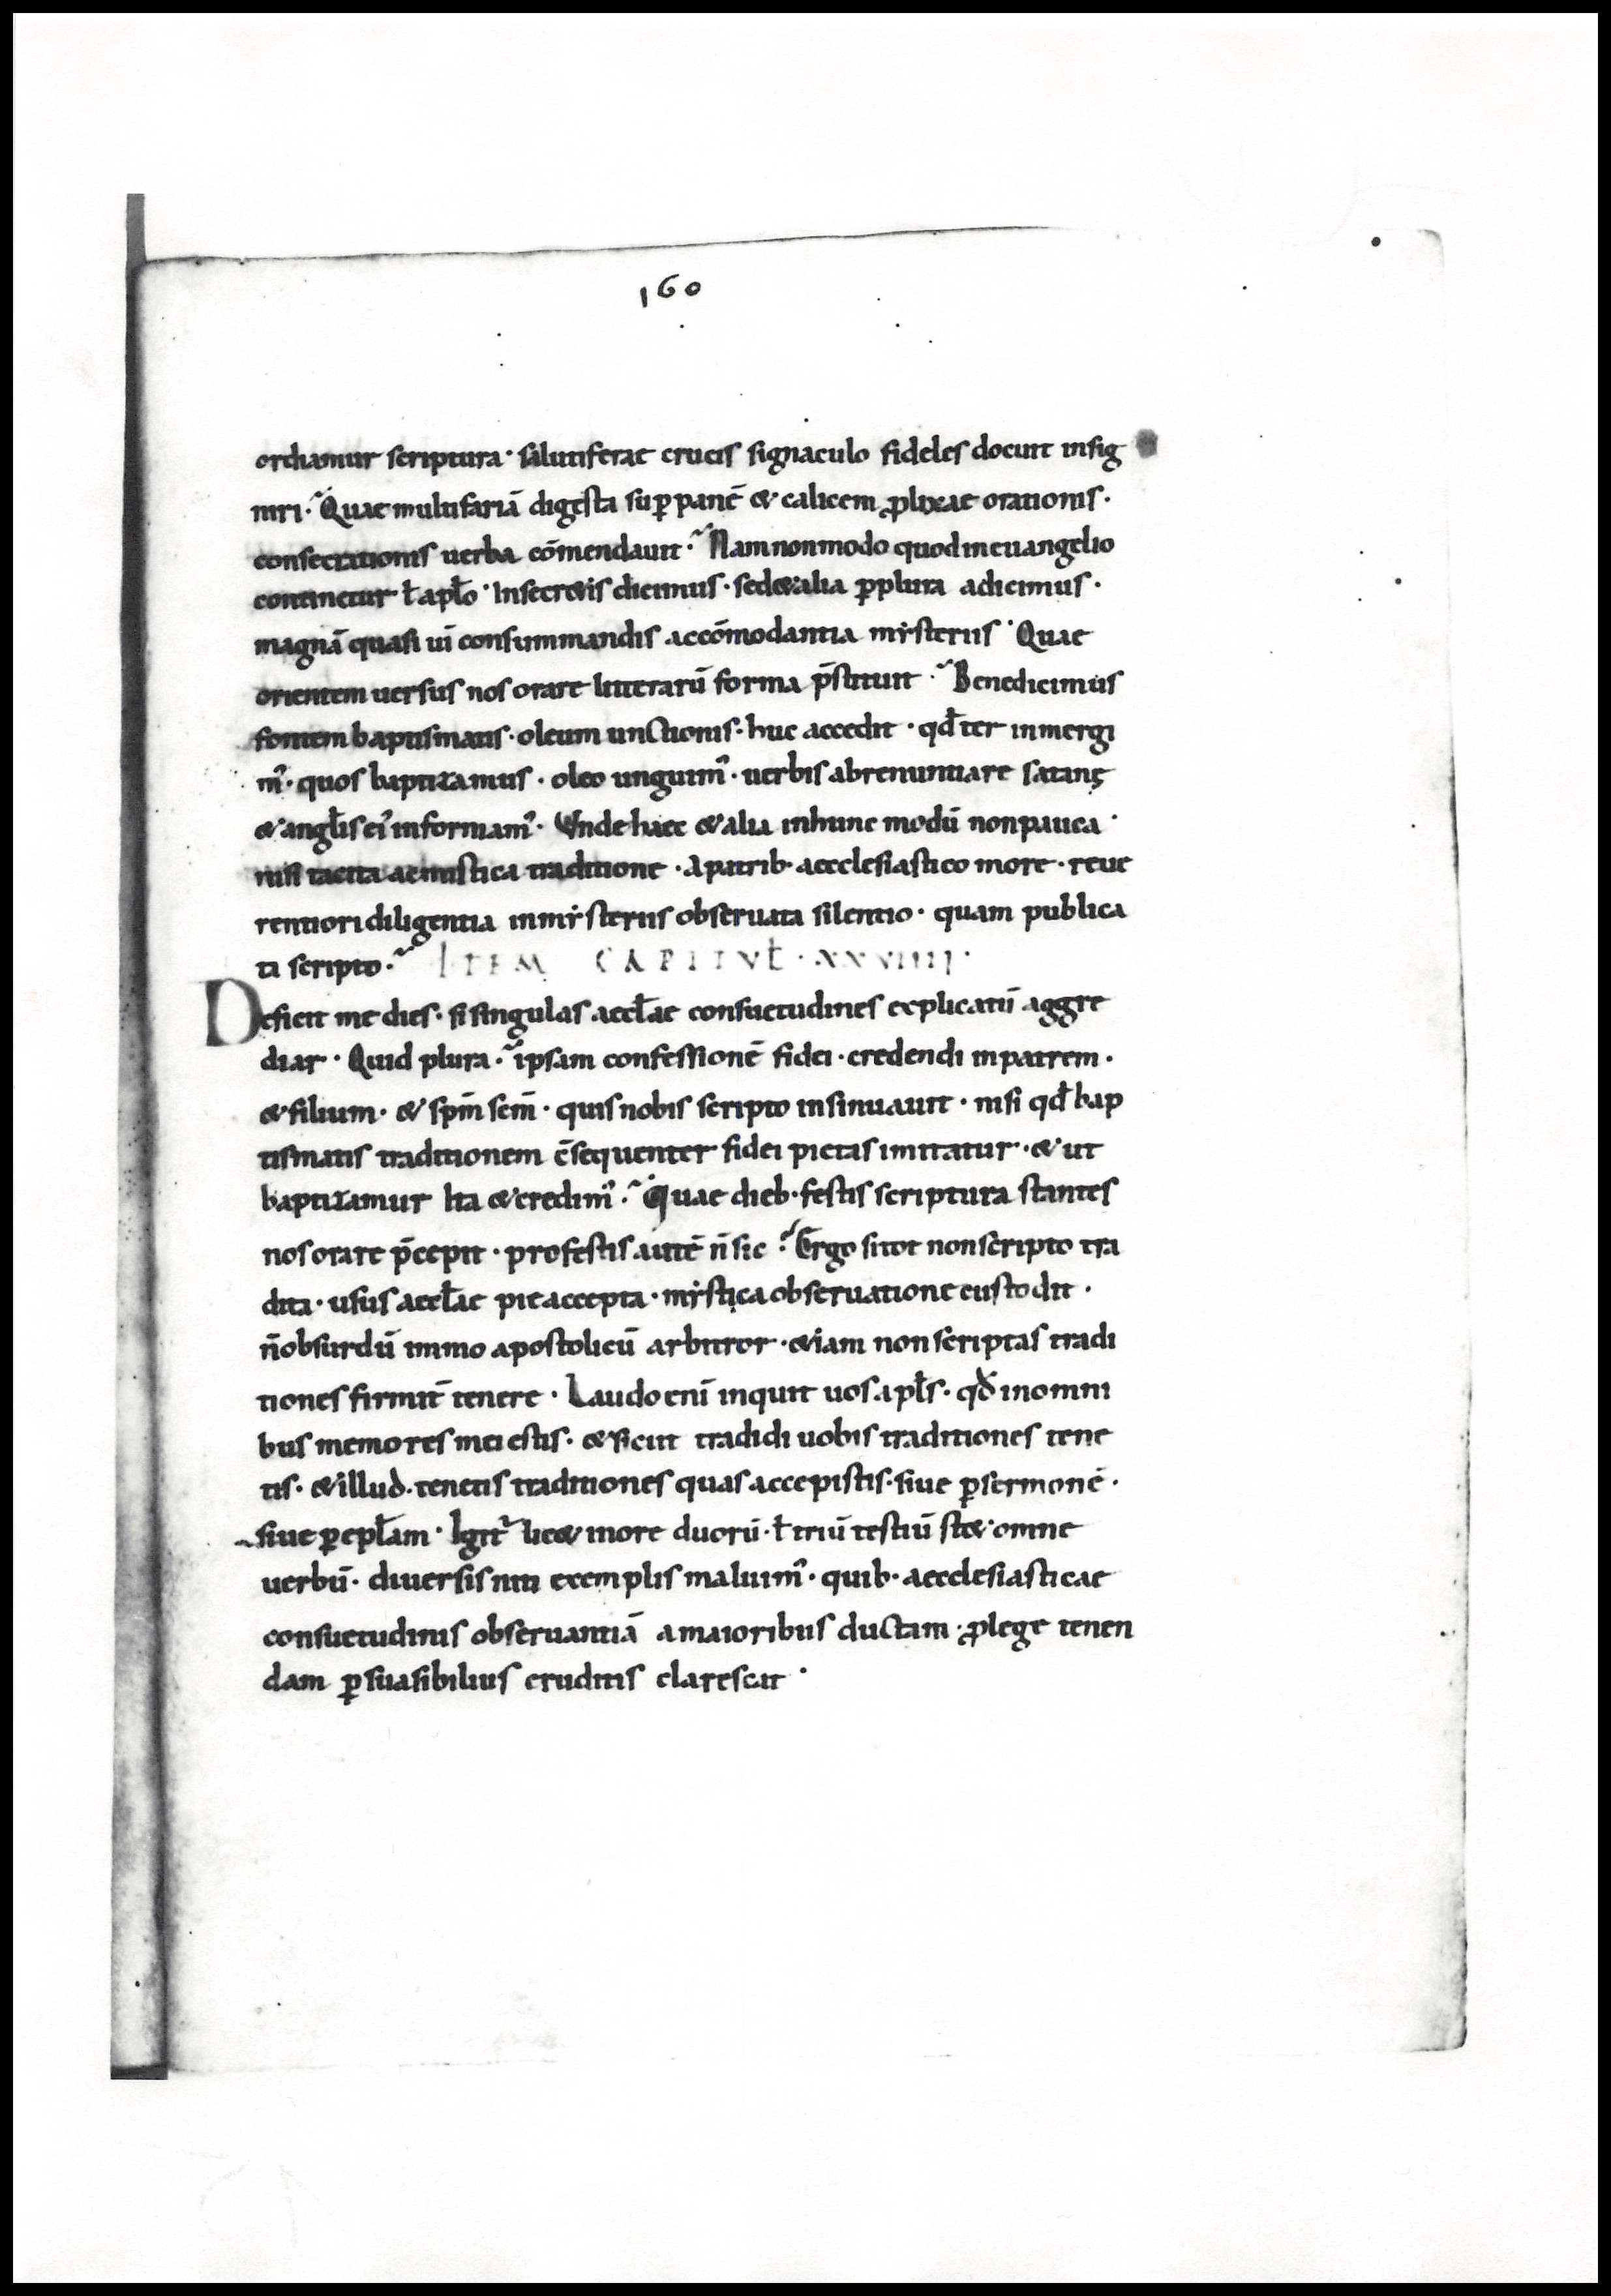 160
ordiamur scriptura· salutiferae crucis signaculo fideles docuit insig
niri· Quae multifariā digesta sup panē & calicem ꝓlixae orationis·
consecrationis uerba cōmendauit· Nam non modo quod in euangelio
continetur ł apło· In secr&is dicimus· sed & alia ꝑplura adicimus·
magnā quasi uī consummandis accōmodantia mẏsteriis· Quae
orientem uersus nos orare litterarū forma p̄stituit· Benedicimus
fontem baptismatis· oleum unctionis· huc accedit· qđ ter inmergi
m᾽· quos baptizamus· oleo unguim᾽· uerbis abrenuntiare satanę
& angłis ei᾽ informam᾽· Vnde haec & alia in hunc modū non pauca·
nisi tacita ac mistica traditione· A patrib· aecclesiastico more· reue
rentiori diligentia in mẏsteriis obseruata silentio· quam publica
ti scripto· ITEM CAPITVŁ· XXVIIII·
Deficit me dies· si singulas aecłae consuetudines explicatū aggre
diar· Quid plura· ipsam confessionē fidei· credendi in patrem·
& filium· & sp̄m sc̄m· quis nobis scripto insinuauit· nisi qđ bap
tismatis traditionem c̄sequenter fidei pietas imitatur· & ut
baptizamur Ita & credim᾽· Quae dieb· festis scriptura stantes
nos orare p̄cepit· profestis autē n̄ sic· Ergo si tot non scripto tra
dita· usus aecłae pie accepta· mẏstica obseruatione custodit·
n̄ obsurdū immo apostolicū arbitror· &iam non scriptas tradi
tiones firmit̄ tenere· Laudo enī inquit uos apłs· qđ in omni
bus memores mei estis· & sicut tradidi uobis traditiones tene
tis· & illud· tenetis traditiones quas accepistis· siue ꝑ sermonē·
siue ꝑ epłam· Igit᾽ lic& more duorū· ł triū testiū st& omne
uerbū· diuersis niti exemplis maluim᾽· quib· aecclesiasticae
consuetudinis obseruantiā a maioribus ductam· ꝓ lege tenen
dam ꝑsuasibilius eruditis clarescat·